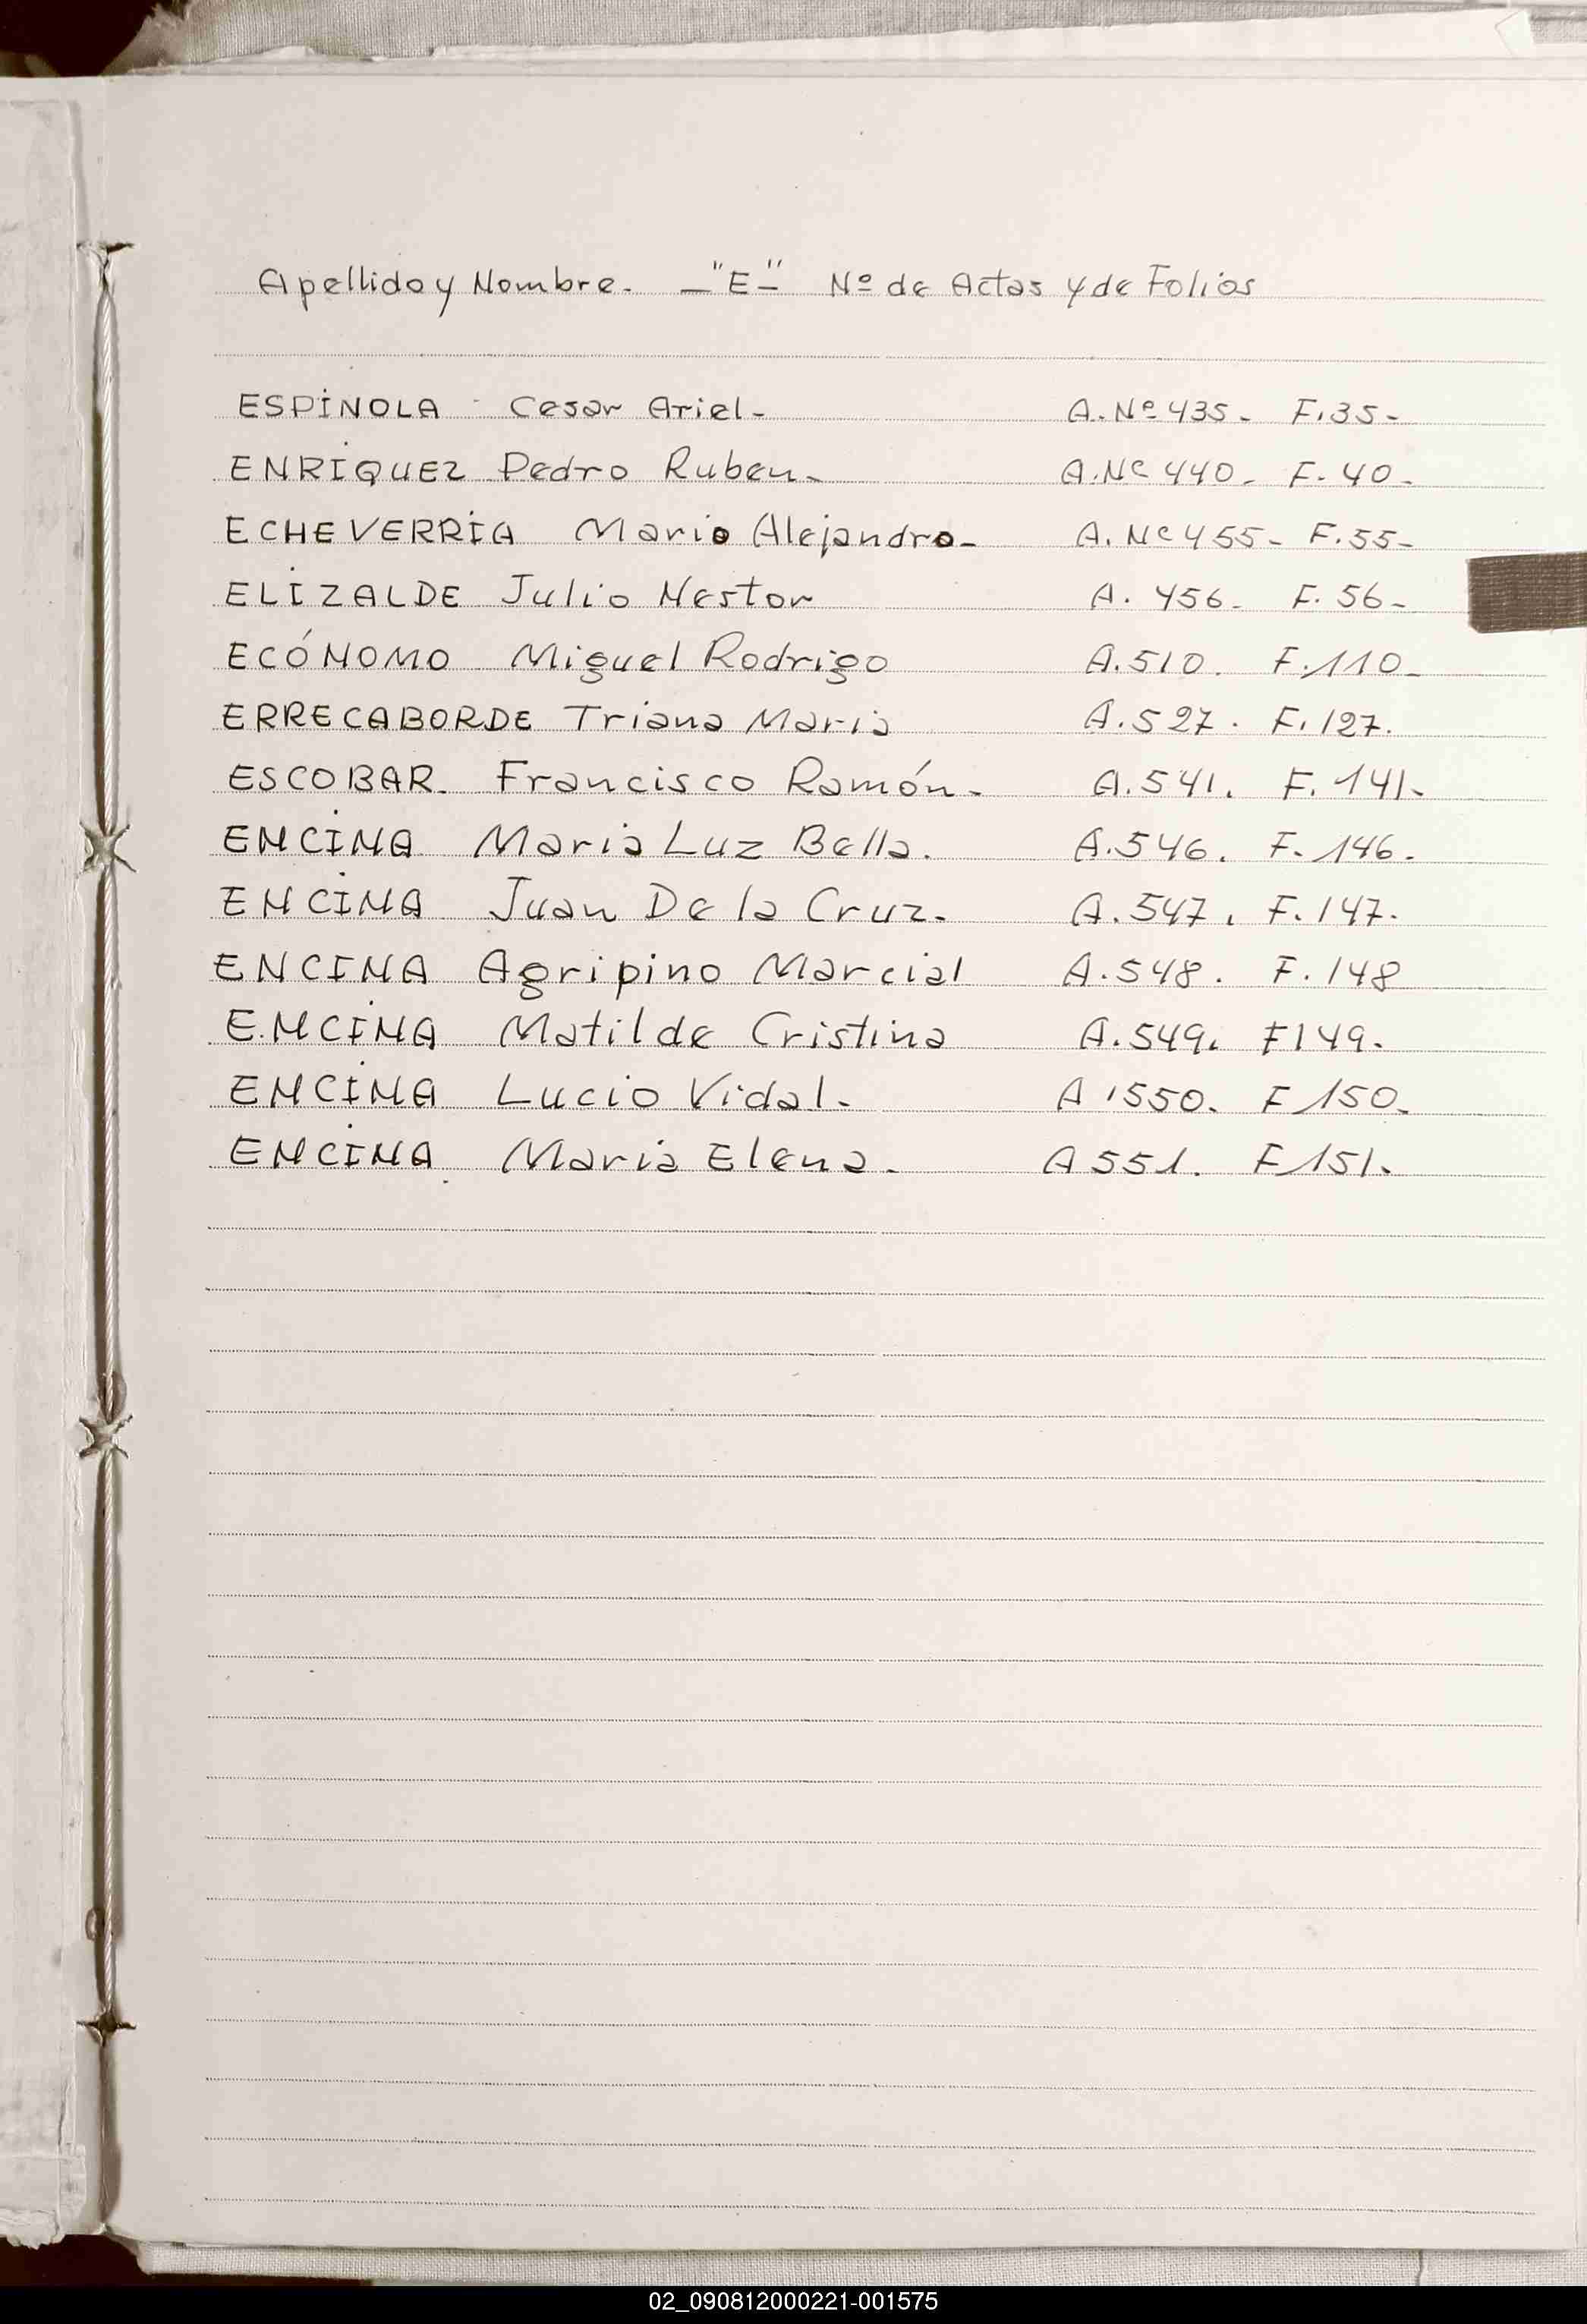 Apellido y Nombre. - "E" - Nº de Actas y de Folios
ESPINOLA - Cesar Ariel - A. Nº 435 - F. 35 -
ENRIQUEZ Pedro Ruben - A. Nº 440 - F. 40 -
ECHEVERRIA Mario Alejandro - A. Nº 455 - F. 55 -
ELIZALDE Julio Nestor A. 456 - F. 56 -
ECÓNOMO Miguel Rodrigo A. 510. F. 110 -
ERRECABORDE Triana Maria A. 527. F. 127.
ESCOBAR. Francisco Ramón - A. 541. F. 141 -
ENCINA Maria Luz Bella. A. 546. F. 146.
ENCINA Juan De la Cruz. A. 547. F. 147.
ENCINA Agripino Marcial A. 548. F. 148
ENCINA Matilde Cristina A. 549. F 149.
ENCINA Lucio Vidal. A. 550. F 150.
ENCINA Maria Elena. A 551. F 151.
02_090812000221-001575